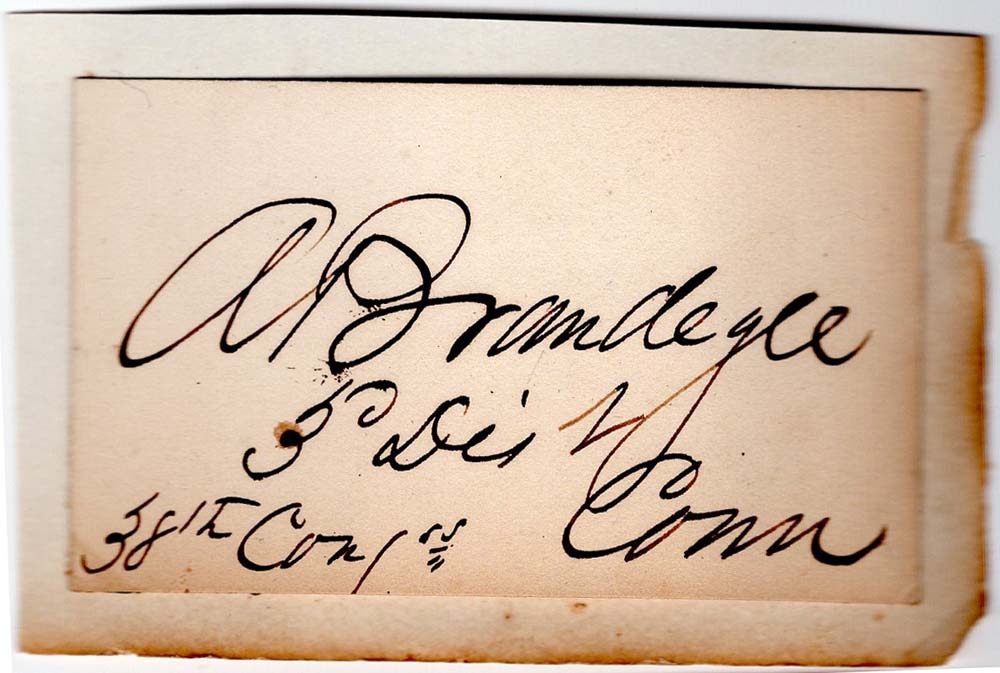 A Brandegee
3d Dist
Conn
38th Congss